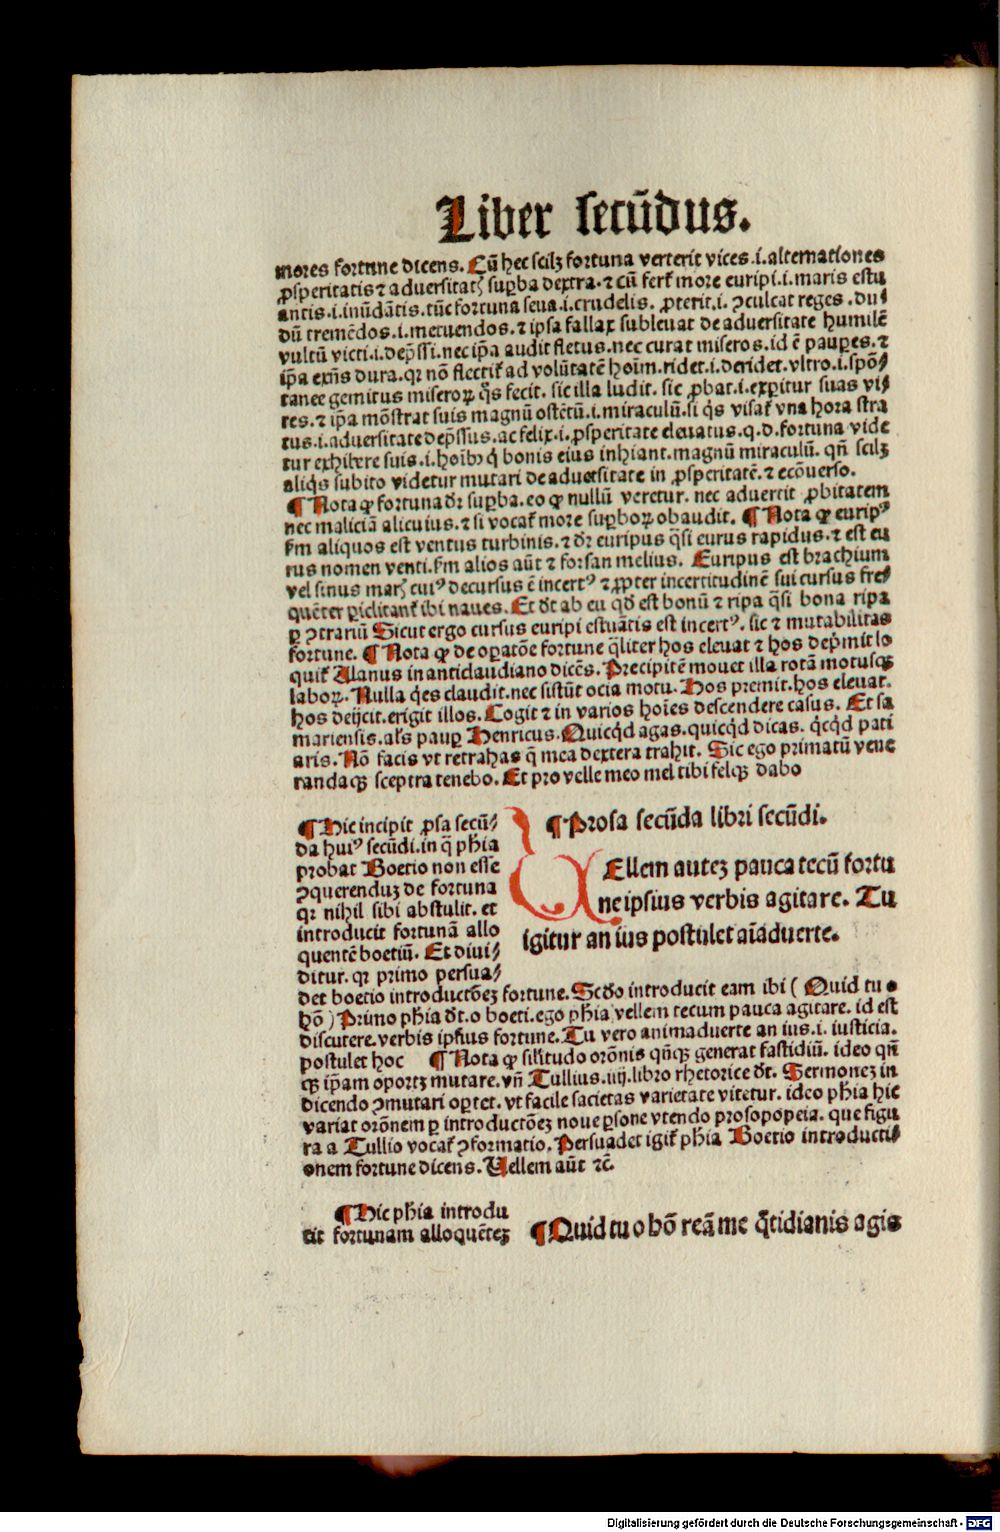 Liber secūdus.
mores fortune dicens. Cū hec scilꝫ fortuna verterit vices .i. alternationes
ꝓsperitatis ⁊ aduersitatꝭ suꝑba dextra. ⁊ cū fert̉ more euripi .i. maris estu
antis .i. inūdātis. tūc fortuna seua .i. crudelis. ꝓterit .i. ꝯculcat reges . du⸗
dū tremēdos .i. metuendos. ⁊ ipsa fallax subleuat de aduersitate humilē
vultū victi .i. dep̄ssi. nec ip̄a audit fletus. nec curat miseros. id ē pauꝑes. ⁊
ip̄a exn̄s dura. qꝛ nō flectit̉ ad volūtatē hoīm. ridet .i. deridet. vltro .i. spō⸗
tanee gemitus miseroꝝ q̊s fecit. sic illa ludit. sic ꝓbat .i. exꝑitur suas vi⸗
res. ⁊ ip̄a mōstrat suis magnū ostētū .i. miraculū. si q̇s visat̉ vna hora stra
tus .i. aduersitate dep̄ssus. ac felix .i. ꝓsperitate eleuatus. q.d. fortuna vide
tur exhibere suis .i. hoībꝰ q̇ bonis eius inhiant. magnū miraculū. qn̄ scilꝫ
aliq̇s subito videtur mutari de aduersitate in ꝓsperitatē. ⁊ ecōuerso.
¶ Nota ꝙ fortuna dr̄ suꝑba. eo ꝙ nullū veretur. nec aduertit ꝓbitatem
nec maliciā alicuius. ⁊ si vocat̉ more suꝑboꝝ obaudit. ¶ Nota ꝙ euripꝰ
ẜm aliquos est ventus turbinis. ⁊ dr̄ euripus q̄si eurus rapidus. ⁊ est eu
rus nomen venti. ẜm alios aūt ⁊ forsan melius. Euripus est brachium
vel sinus marꝭ cuiꝰ decursus ē incertꝰ ⁊ ꝓpter incertitudinē sui cursus fre⸗
quēter ꝑiclitant̉ ibi naues. Et dt̄ ab eu qd̄ est bonū ⁊ ripa q̄si bona ripa
ꝑ ꝯtrariū Sicut ergo cursus euripi estuātis est incertꝰ. sic ⁊ mutabilitas
fortune. ¶ Nota ꝙ de oꝑatōe fortune q̄liter hos eleuat ⁊ hos dep̄mit lo
quit̉ Alanus in anticlaudiano dicēs. Precipitē mouet illa rotā motusqꝫ
laboꝝ. Nulla q̇es claudit. nec sistūt ocia motu. Hos premit. hos eleuat.
hos deijcit. erigit illos. Cogit ⁊ in varios hoīes descendere casus. Et sa
mariensis. al̄s pauꝑ Henricus. Quicq̇d agas. quicq̇d dicas. q̇cq̇d pati
aris. Nō facis vt retrahas q̄ mea dextera trahit. Sic ego primatū vene
randaqꝫ sceptra tenebo. Et pro velle meo mel tibi felqꝫ dabo
¶ Hic incipit ꝓsa secū⸗
da huiꝰ secūdi. in q̄ ph̄ia
probat Boetio non esse
ꝯquerenduꝫ de fortuna
qꝛ nihil sibi abstulit. et
introducit fortunā allo
quentē boetiū. Et diui⸗
ditur. qꝛ primo persua⸗
¶ Prosa secūda libri secūdi.
VEllem auteꝫ pauca tecū fortu
ne ipsius verbis agitare. Tu
igitur an ius postulet aīaduerte.
det boetio introductōeꝫ fortune. Scd̄o introducit eam ibi ( Quid tu o
hō ) Primo ph̄ia dt̄. o boeti. ego ph̄ia vellem tecum pauca agitare. id est
discutere. verbis ipsius fortune. Tu vero animaduerte an ius .i. iusticia.
postulet hoc ¶ Nota ꝙ sil̄itudo orōnis qn̄qꝫ generat fastidiū. ideo qn̄
qꝫ ip̄am oportꝫ mutare. vn̄ Tullius .iiij. libro rhetorice dt̄. Sermoneꝫ in
dicendo ꝯmutari oꝑtet. vt facile sacietas varietate vitetur. ideo ph̄ia hic
variat orōnem ꝑ introductōeꝫ noue ꝑsone vtendo prosopopeia. que figu
ra a Tullio vocat̉ ꝯformatio. Persuadet igit̉ ph̄ia Boetio introducti⸗
onem fortune dicens. Vellem aūt ⁊c̄.
¶ Hic ph̄ia introdu
cit fortunam alloquēteꝫ
¶ Quid tu o hō reā me q̄tidianis agis
Digitalisierung gefördert durch die Deutsche Forschungsgemeinschaft - DFG